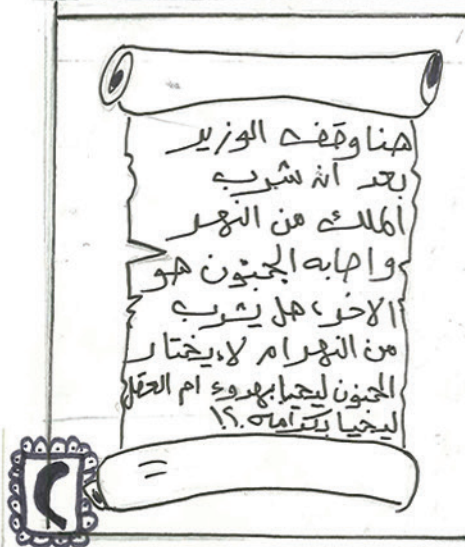 هنا وقف الوزير
بعد ان شرب
الملك من النهر
واصابه الجنون هو
الاخر، هل يشرب
من النهر ام لا، يختار
الجنون ليحيا بهدوء ام العقل
ليحيا بكرامه.؟!
٢